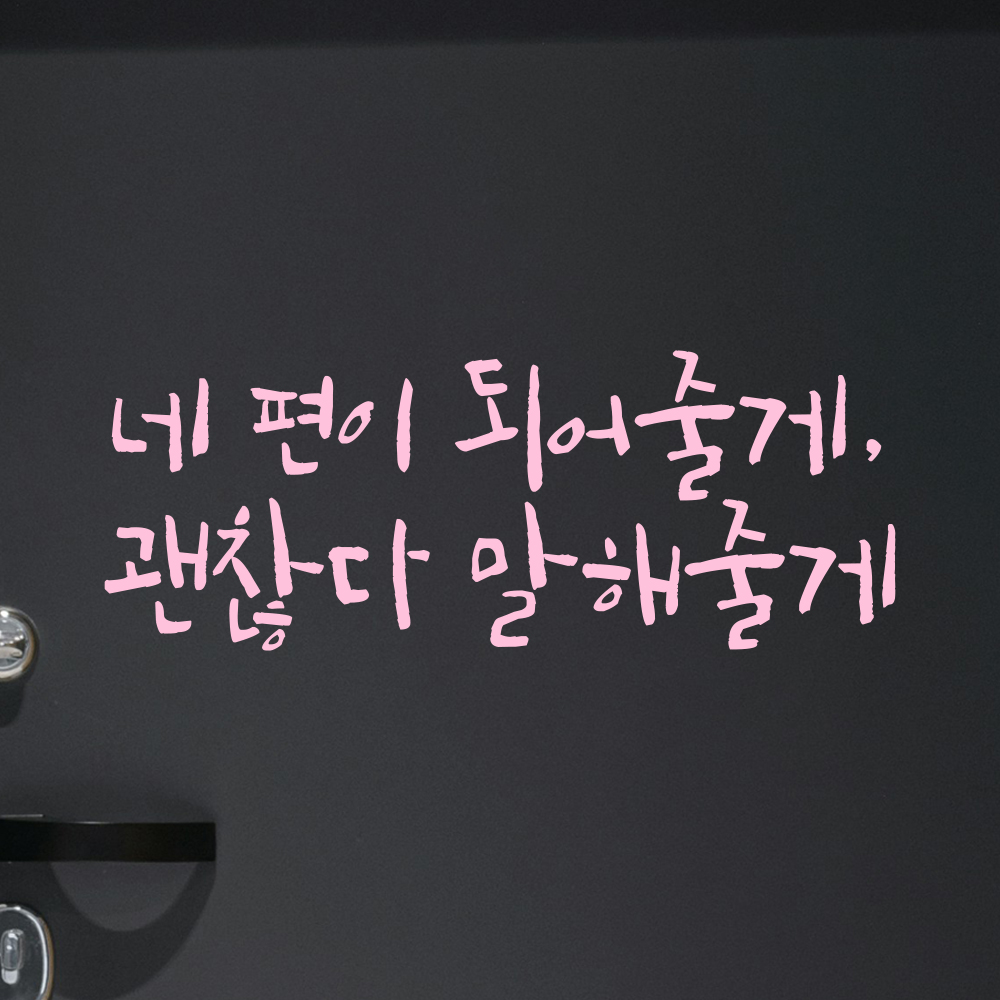 네 편이 되어줄게,
괜찮다 말해줄게